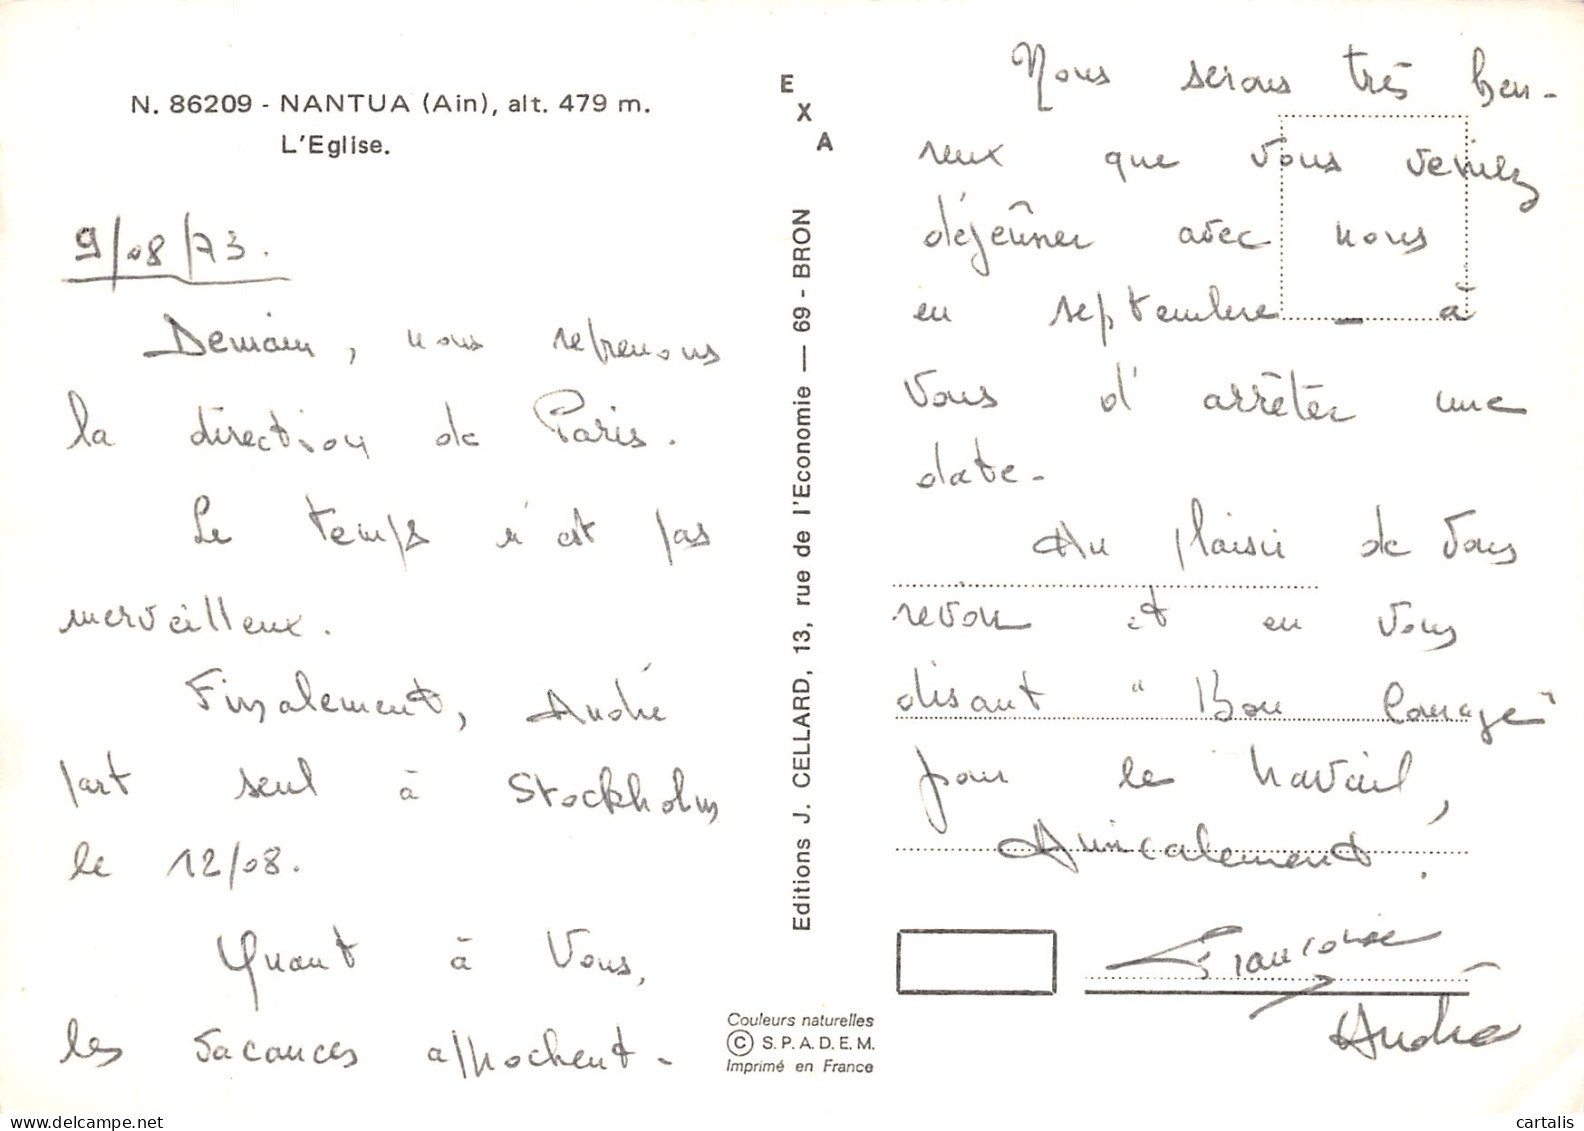 N. 86209 - NANTUA (Ain), alt. 479 m.
L'Eglise.
9/08/73.
Demain, nous reprenons
la direction de Paris.
Le temps n'est pas
merveilleux.
Finalement, André
part seul à Stockholm
le 12/08.
Quant à vous,
les vacances approchent.
E
X
A
Editions J. CELLARD, 13, rue de l'Economie — 69 - BRON
Couleurs naturelles
© S.P.A.D.E.M.
Imprimé en France
Nous serons très heu-
reux que vous veniez
déjeûner avec nous
en septembre - à
vous d'arrêter une
date.
Au plaisir de vous
revoir et en vous
disant "Bon courage"
pour le travail,
Amicalement!
Françoise
André
cartalis